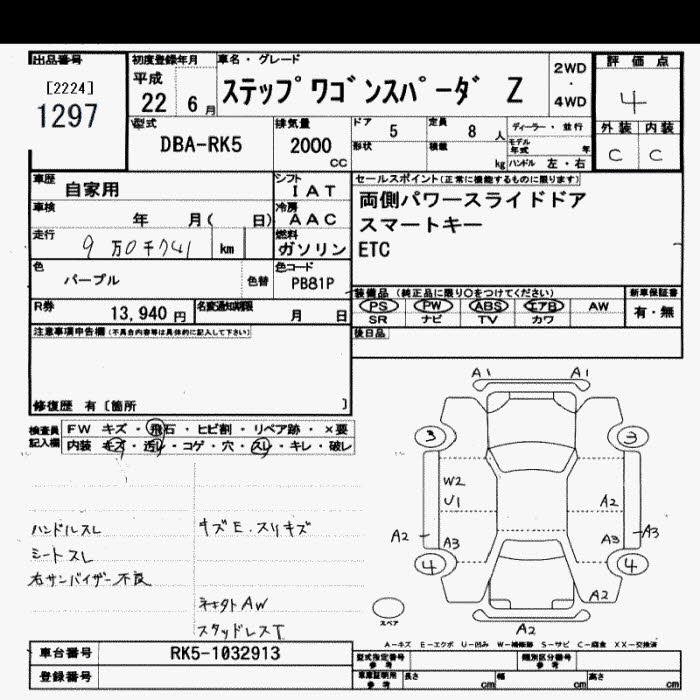 出品番号
[2224]
1297
初度登録年月
平成
22年 6月
車名・グレード
ステップワゴンスパーダ Z
2WD
・
4WD
評価点
4
外装 内装
C C
型式
DBA-RK5
排気量
2000
CC
ドア
5
定員
8 人
形状
積載
kg
ディーラー・並行
モデル年式 年
ハンドル 左・右
車歴
自家用
シフト
IAT
車検
年 月( 日)
冷房
AAC
走行
km
燃料
ガソリン
色
パープル
色替
色コード
PB81P
R券
13,940 円
名変通知期限
月 日
セールスポイント(正常に機能するものに限ります)
両側パワースライドドア
スマートキー
ETC
装備品(純正品に限り○をつけてください)
PS PW ABS エアB AW
SR ナビ TV カワ
新車保証書
有・無
後日品
注意事項申告欄(不具合内容等は具体的に記入して下さい)
修復歴 有〔箇所 〕
検査員
記入欄
FW キズ・飛石・ヒビ割・リペア跡・×要
内装 キズ・汚れ・コゲ・穴・スレ・キレ・破レ
ハンドルスレ
シートスレ
右サンバイザー不良
キズE.スリキズ
AW
スタッドレスT
A1 A1
3 3
W2
U1
A2
A2 A3 A3 A3
4 4
A2
スペア
A2
A-キズ E-エクボ U-凹み W-補修跡 S-サビ C-腐食 XX-交換済
車台番号
RK5-1032913
登録番号
型式指定番号
参考
類別区分番号
参考
車庫証明用
参考
長さ cm 幅 cm 高さ cm